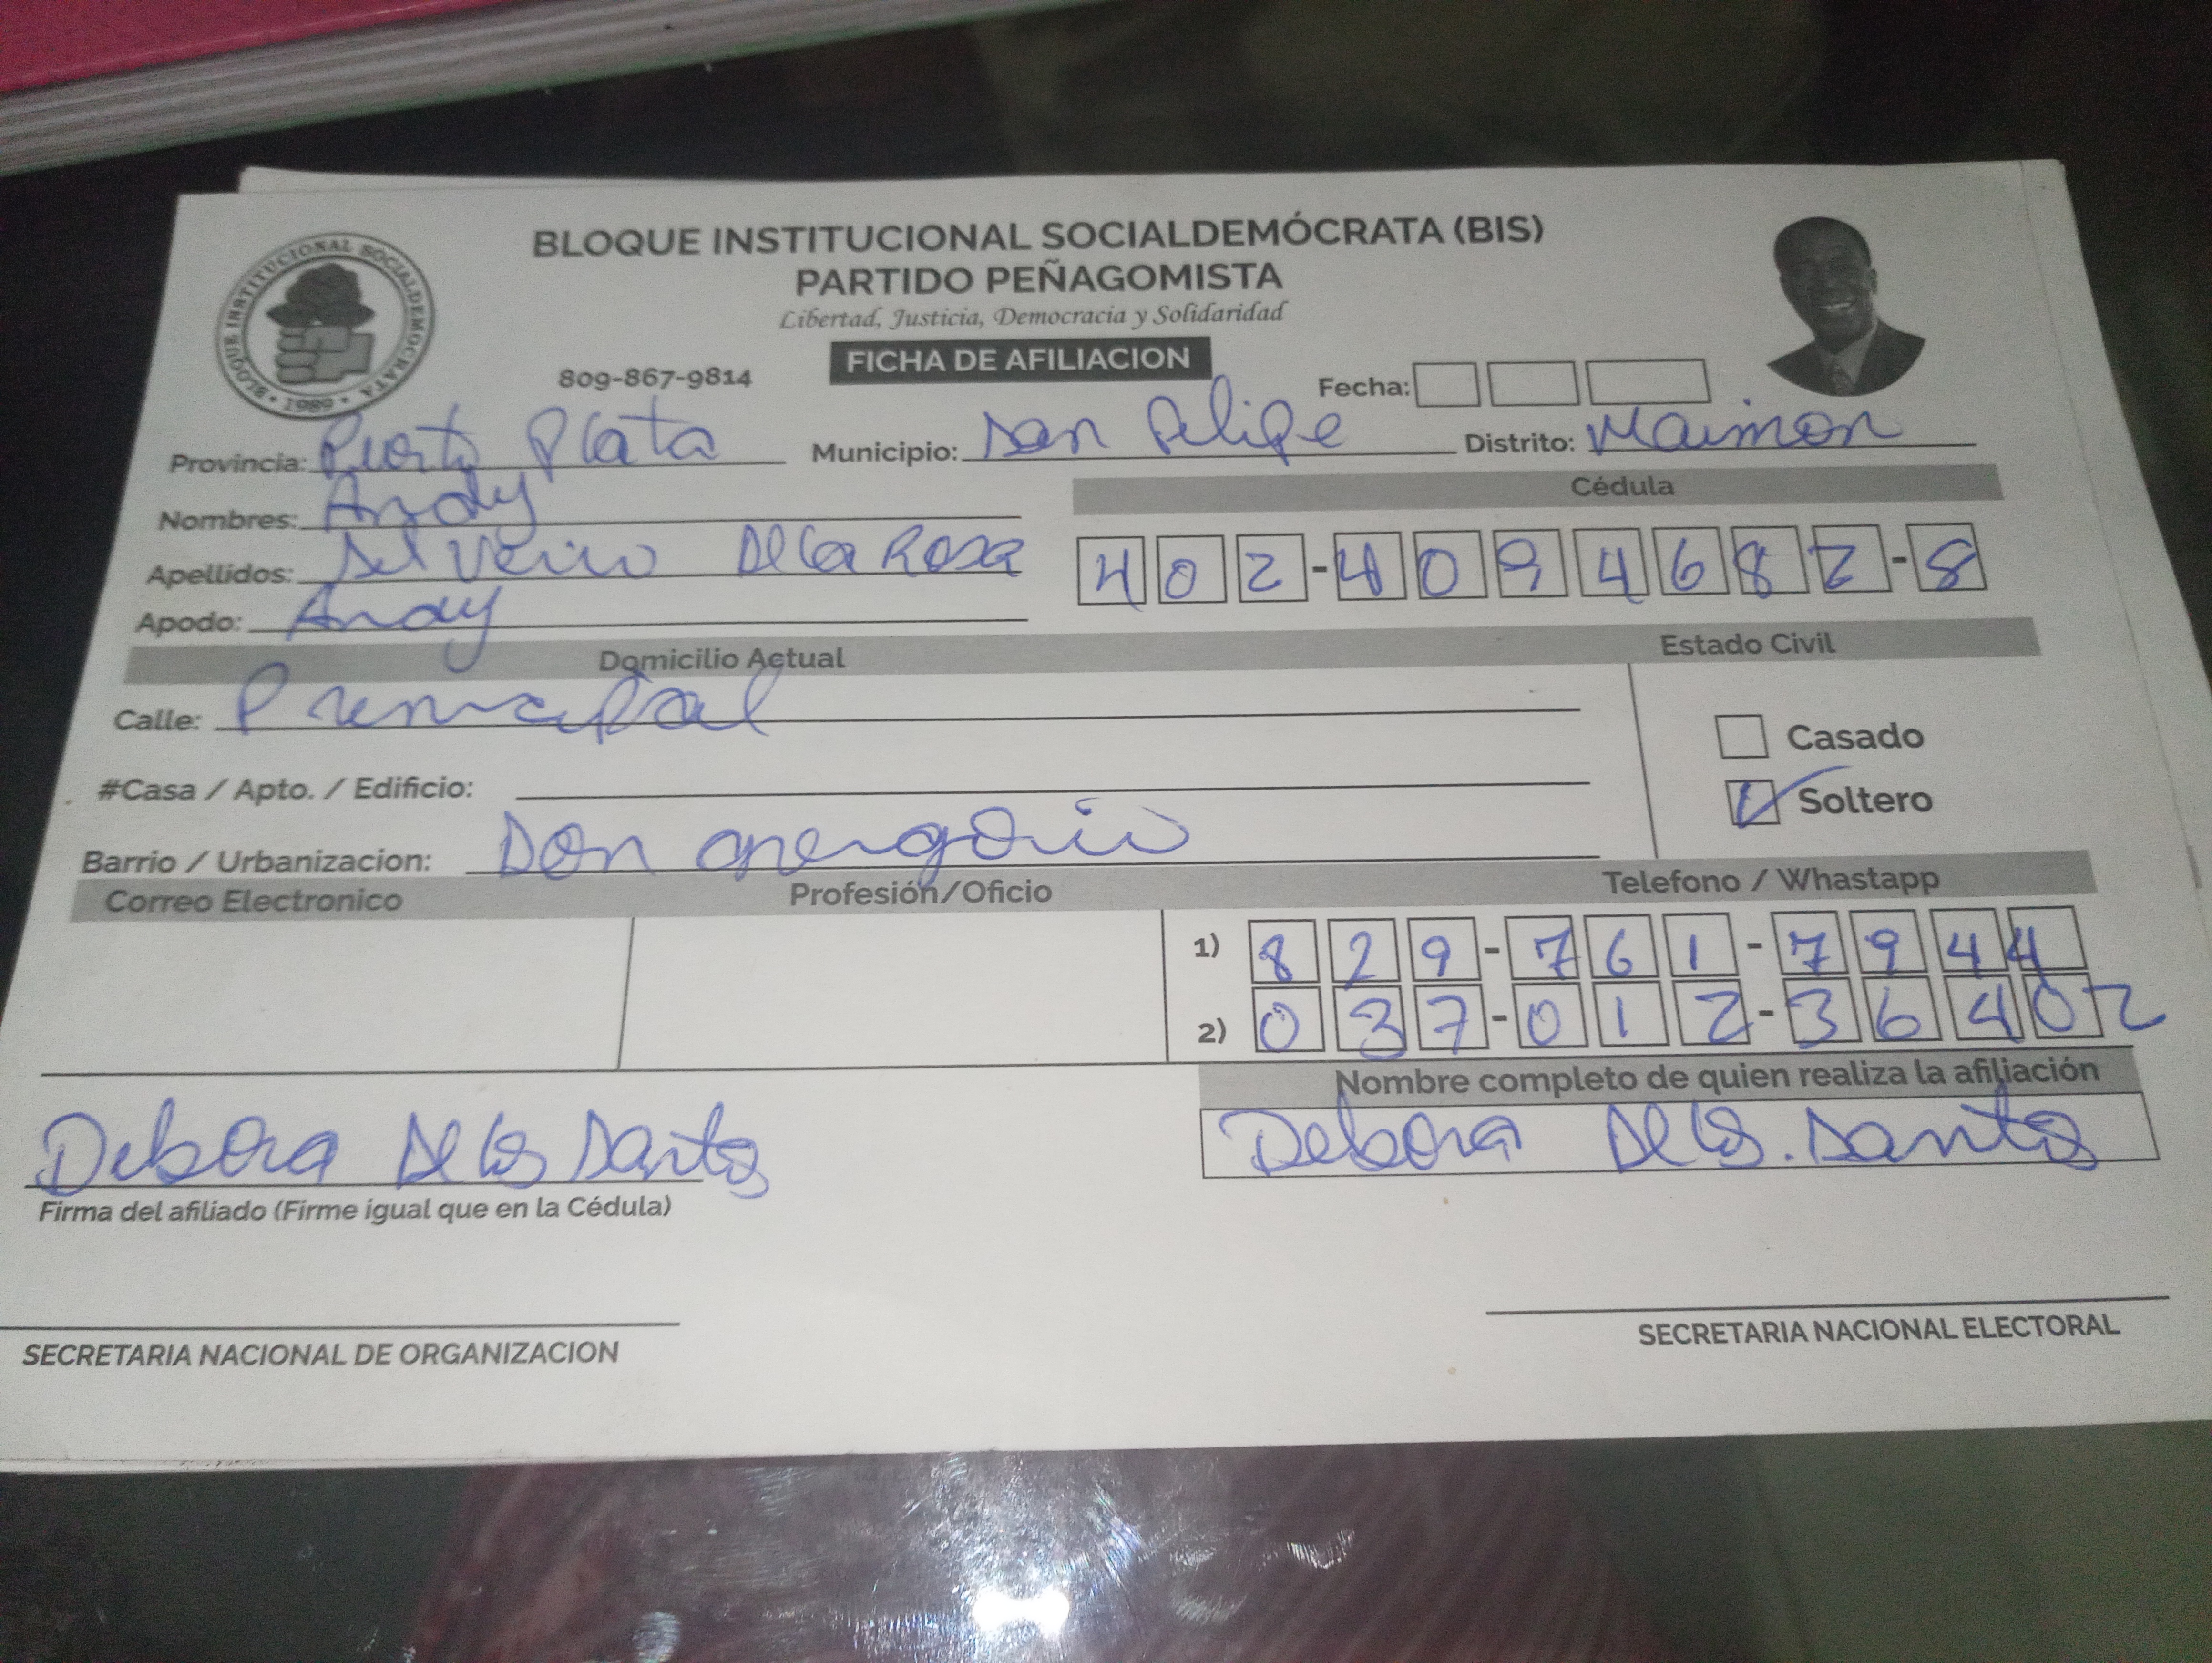 BLOQUE INSTITUCIONAL SOCIALDEMÓCRATA (BIS)
PARTIDO PEÑAGOMISTA
Libertad, Justicia, Democracia y Solidaridad
BLOQUE INSTITUCIONAL SOCIALDEMOCRATA • 1989 •
809-867-9814
FICHA DE AFILIACION
Fecha:
Provincia: Puerto Plata Municipio: San Felipe Distrito: Maimon
Nombres: Andy
Cédula
Apellidos: Delacrosa
402-4094682-8
Apodo: Andy
Domicilio Actual
Estado Civil
Calle: Principal
Casado
#Casa / Apto. / Edificio:
Soltero
Barrio / Urbanizacion: Don gregorio
Correo Electronico Profesión/Oficio Telefono / Whastapp
1) 829-761-7944
2) 037-012-36402
Nombre completo de quien realiza la afiliación
Debora De los Santos
Debora De los. Santos
Firma del afiliado (Firme igual que en la Cédula)
SECRETARIA NACIONAL DE ORGANIZACION
SECRETARIA NACIONAL ELECTORAL